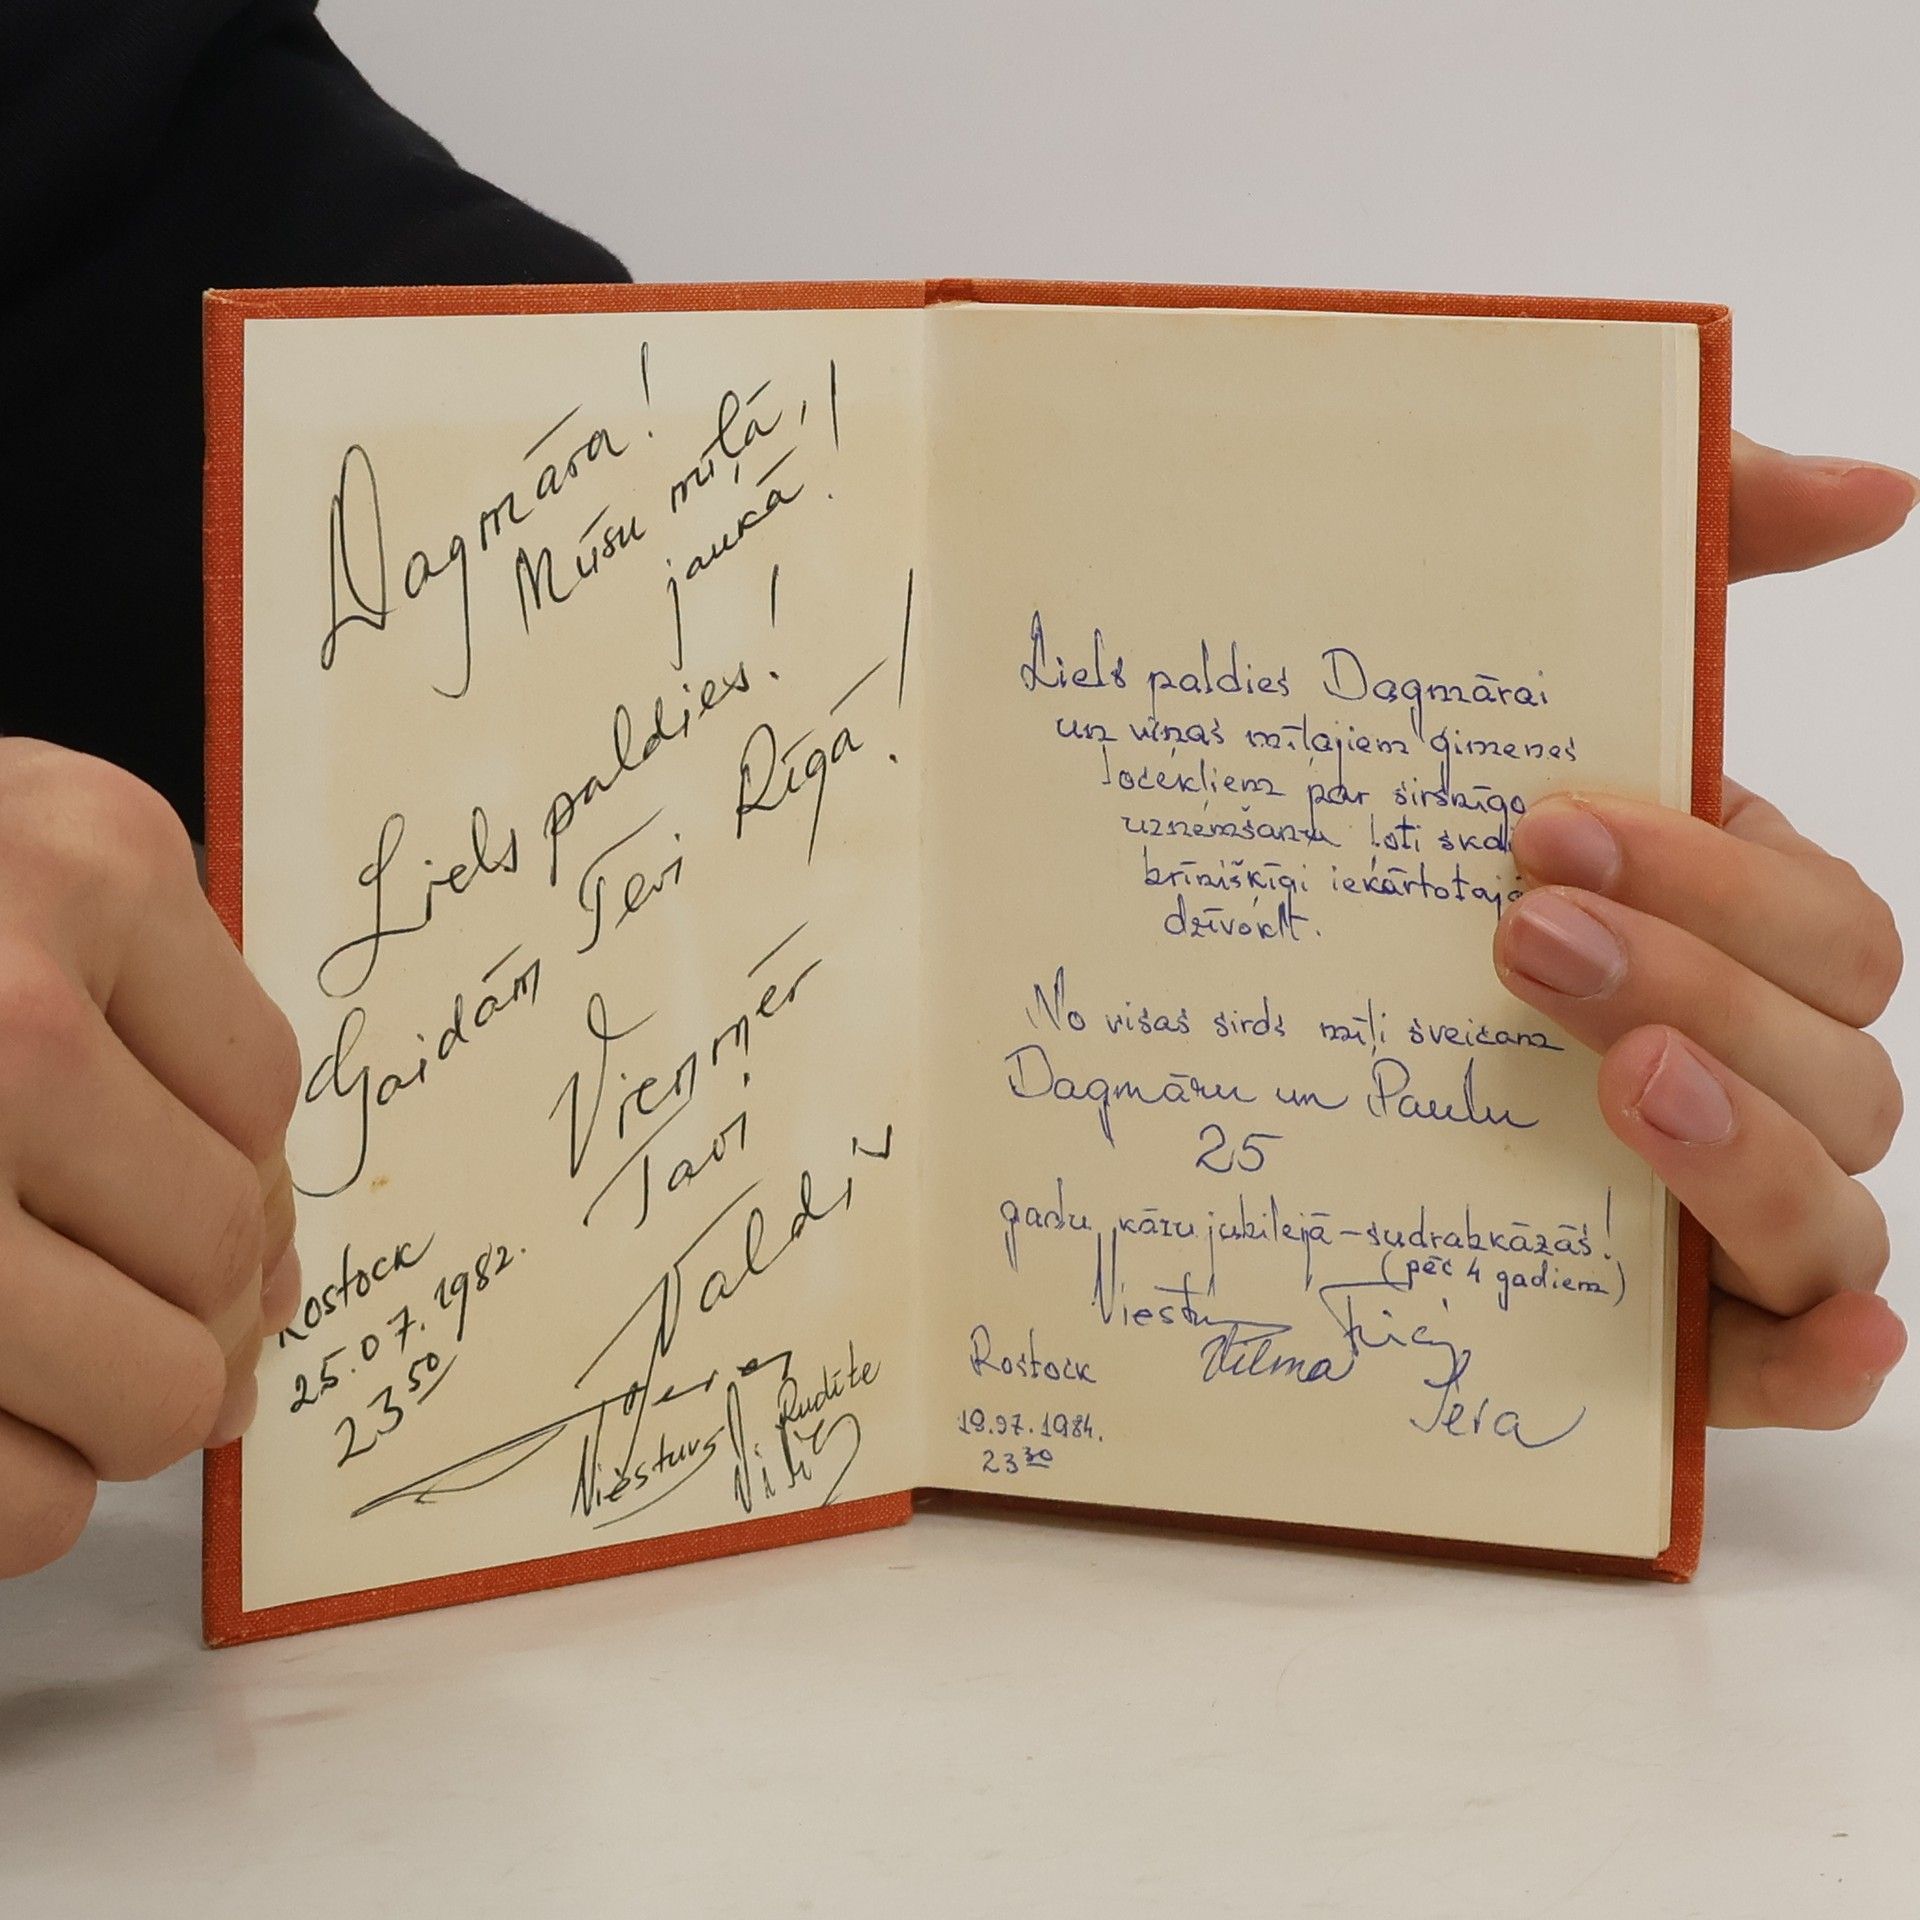 Dagmāra!
Mūsu mīļā,
jaukā!
Liels paldies!
Gaidām Tevi Rīgā!
Vienmēr
Tavi
Valdis
Rudīte
Viesturs
Rostock
25.07.1982.
23 50
Liels paldies Dagmārai
un viņas mīļajiem ģimenes
locekļiem par sirsnīgo
uzņemšanu ļoti skai
brīnišķīgi iekārtotajā
dzīvoklī.
No visas sirds mīļi sveicam
Dagmāru un Paulu
25
gadu kāzu jubilejā - sudrabkāzās!
(pēc 4 gadiem)
Viestu
Vilma
Rostock
19.07.1984.
23 30